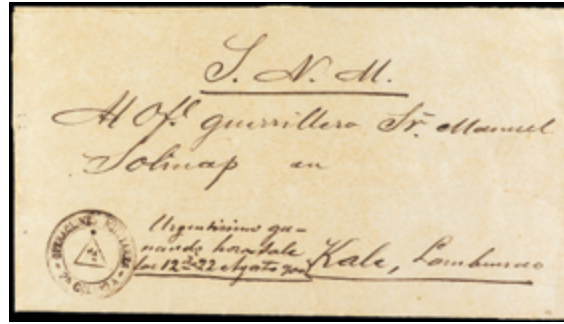 S. N. M.
Al Of.l guerrillero Sr. Manuel
Solinap en
Urgentisimo ga-
nando hora sale
las 12 22 Agosto 900
Kale, Lambunao
OPERACIONES MILITARES